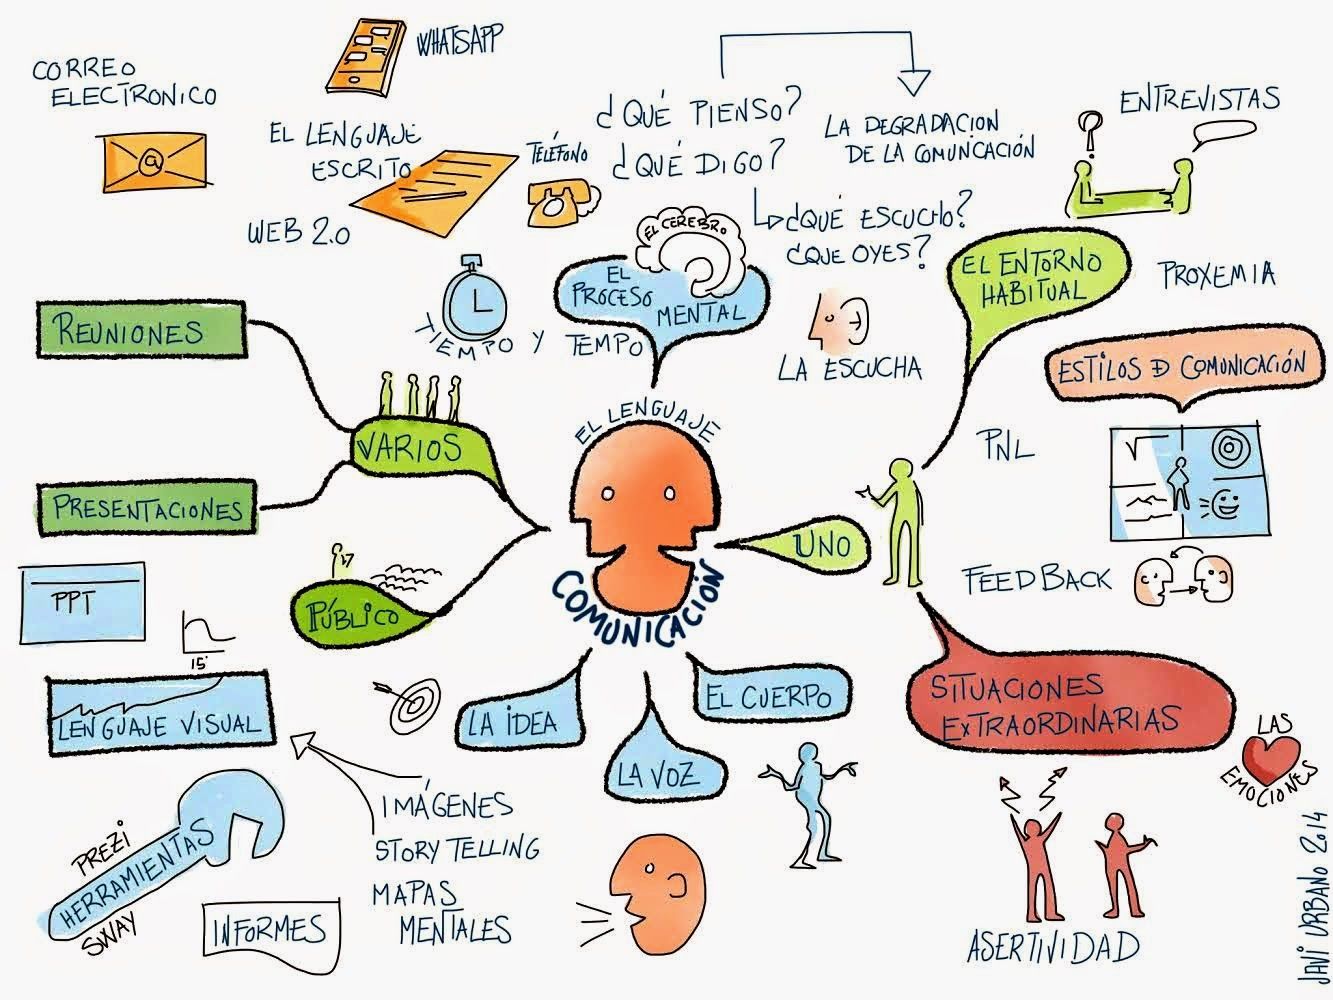 CORREO
ELECTRONICO
@
WHATSAPP
EL LENGUAJE
ESCRITO
WEB 2.0
TELÉFONO
¿QUÉ PIENSO?
¿QUÉ DIGO?
LA DEGRADACION
DE LA COMUNCACIÓN
¿QUÉ ESCUCHO?
¿QUE OYES?
ENTREVISTAS
EL CEREBRO
EL
PROCESO
MENTAL
EL ENTORNO
HABITUAL
PROXEMIA
TIEMPO Y TEMPO
LA ESCUCHA
REUNIONES
ESTILOS D COMUNICACIÓN
VARIOS
EL LENGUAJE
PNL
PRESENTACIONES
UNO
PPT
FEEDBACK
PÚBLICO
COMUNICACIÓN
15'
LENGUAJE VISUAL
LA IDEA
LA VOZ
EL CUERPO
SITUACIONES
EXTRAORDINARIAS
LAS
EMOCIONES
IMÁGENES
STORY TELLING
MAPAS
MENTALES
PREZI
HERRAMIENTAS
SWAY
INFORMES
ASERTIVIDAD
JAVI URBANO 2014